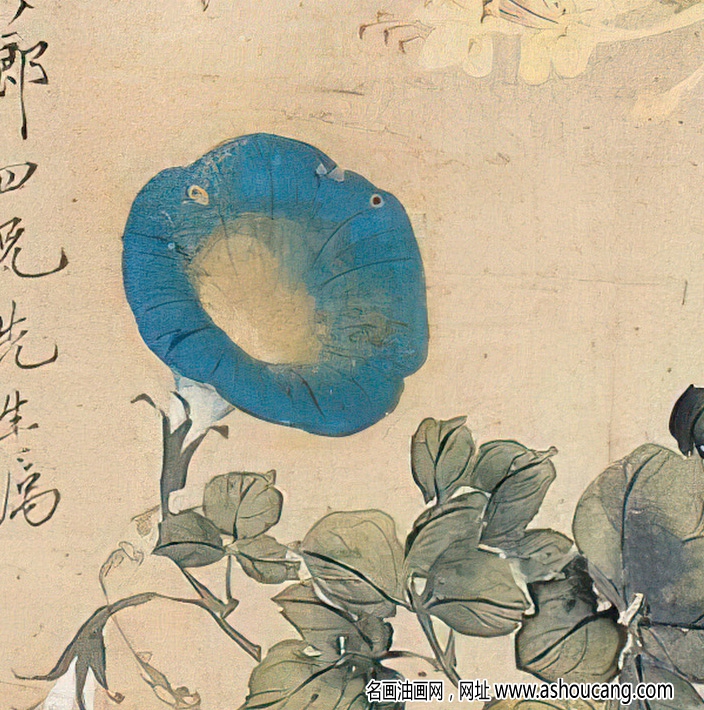 郎四兄先生属
名画油画网，网址 www.ashoucang.com